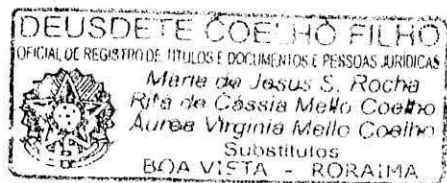 DEUSDETE COELHO FILHO
OFICIAL DE REGISTRO DE TITULOS E DOCUMENTOS E PESSOAS JURÍDICAS
Maria de Jesus S. Rocha
Rita de Cássia Mello Coelho
Aurea Virginia Mello Coelho
Substitutos
BOA VISTA - RORAIMA